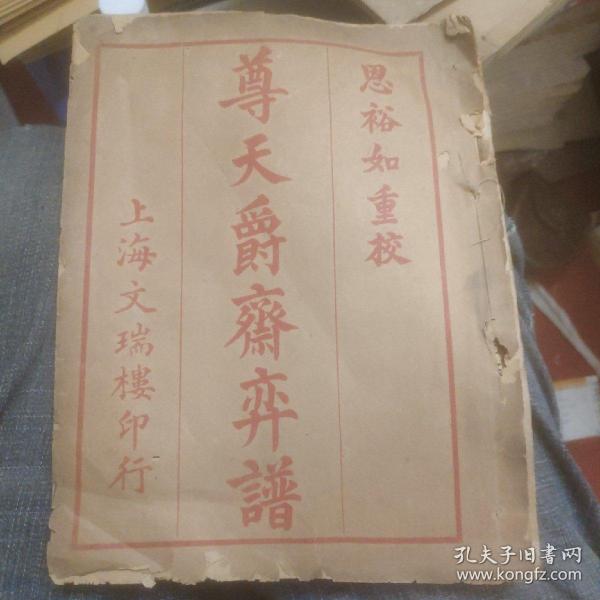 恩裕如重校
尊天爵齋弈譜
上海文瑞樓印行
孔夫子旧书网
www.kongfz.com